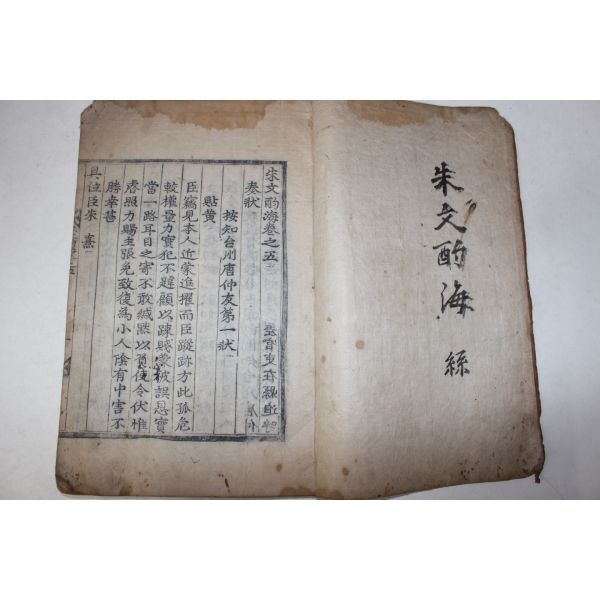 朱文酌海 絲
朱文酌海卷之五
奏狀
按知台州唐仲友第一狀
貼黄
臣竊見本人近蒙進擢而臣蹤跡方此孤危
較權量力實犯不韙顧以踈賤蒙被誤恩實
當一路耳目之寄不敢緘默以負使令伏惟
睿照力賜主張免致復爲小人陰有中害不
勝幸甚
具位臣朱 熹